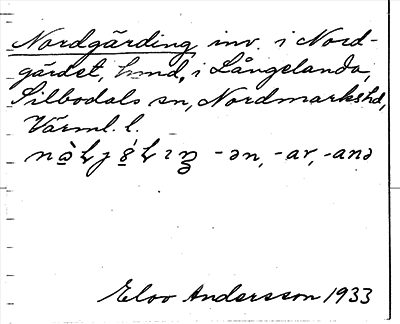 Nordgärding, inv. i Nord-
gärdet, hmd, i Långelanda,
Silbodals sn, Nordmarks hd,
Värml. l.
-ən, -ar, -anə
Elov Andersson 1933